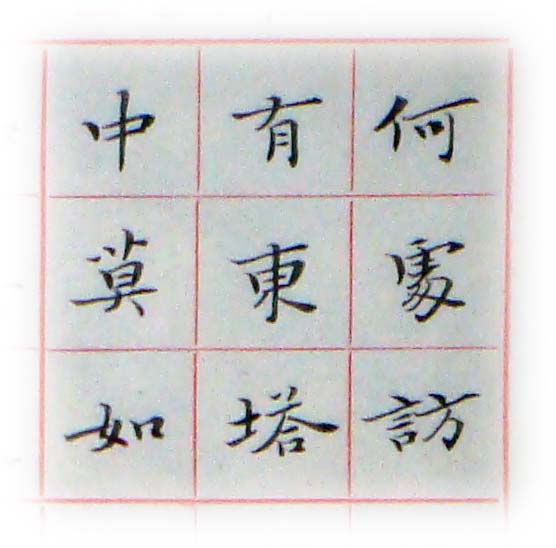 何處訪
有東塔
中莫如